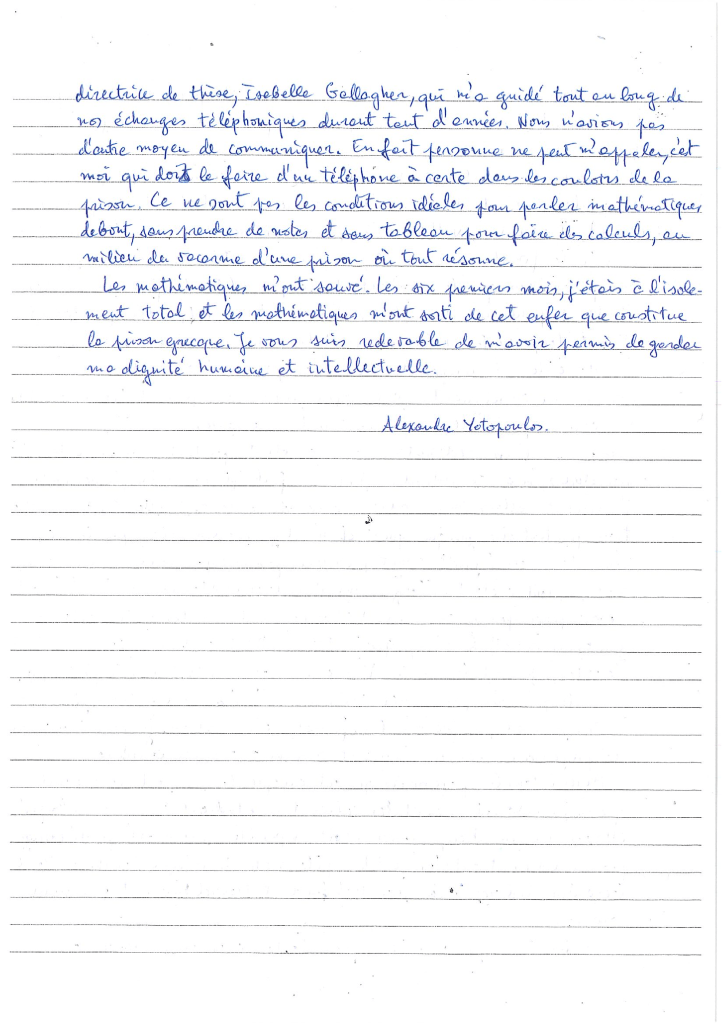 directrice de thèse, Isabelle Gallagher, qui m'a guidé tout au long de
nos échanges téléphoniques durant tant d'années. Nous n'avions pas
d'autre moyen de communiquer. En fait personne ne peut m'appeler, c'et
moi qui doit le faire d'un téléphone à carte dans les couloirs de la
prison. Ce ne sont pas les conditions idéales pour parler mathématiques
debout, sans prendre de notes et sans tableau pour faire des calculs, au
milieu du vacarme d'une prison où tout résonne.
Les mathématiques m'ont sauvé. Les six premiers mois, j'étais à l'isole-
ment total et les mathématiques m'ont sorti de cet enfer que constitue
la prison grecque. Je vous suis redevable de m'avoir permis de garder
ma dignité humaine et intellectuelle.
Alexandre Yotopoulos.